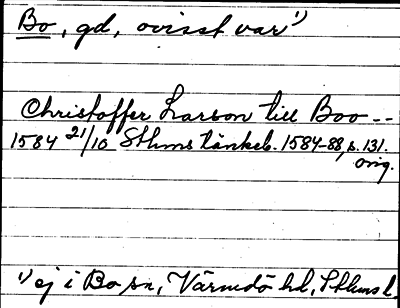 Bo, gd, ovisst var ¹⁾
Christoffer Larson till Boo --
1584 21/10 Sthms tänkeb. 1584-88, s. 131.
orig.
¹⁾ ej i Bo sn, Värmdö hd, Sthms l.